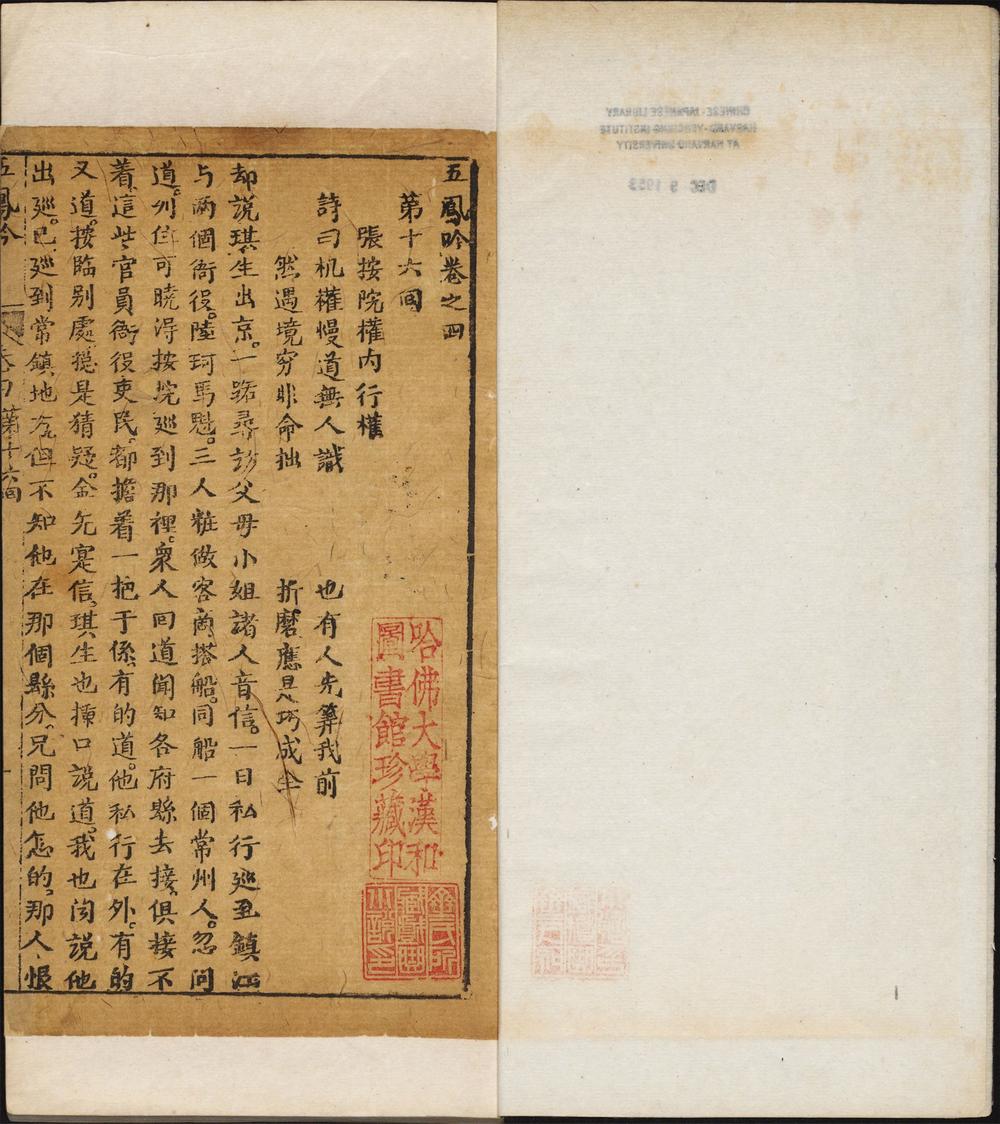 五鳳吟卷之四
第十六回
張按院權内行權
詩曰机權慢道無人識　也有人先筭我前
然遇境穷非命拙　折磨應是巧成全
却説琪生出京。一路尋訪父母小姐諸人音信。一日私行廵至鎮江
与両個衙役。陸珂馬魁。三人粧做客商搭船。同船一個常州人。忽问
道。列位可曉得按院廵到那裡。衆人回道聞知各府縣去接。俱接不
着。這些官員衙役吏民。都擔着一把干係。有的道。他私行在外。有的
又道。按臨别處。揔是猜疑。全无寔信。琪生也揷口説道。我也闻説他
出廵。已廵到常鎮地方。但不知他在那個縣分。兄問他怎的。那人恨
五鳳吟
卷四第十六回
哈佛大學漢和
圖書館珍藏印
CHINESE-JAPANESE LIBRARY
HARVARD-YENCHING INSTITUTE
AT HARVARD UNIVERSITY
DEC 9 1953